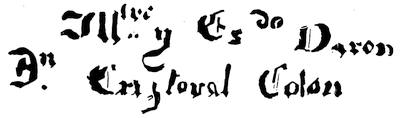 Illtre. y Esdo Varon
Dn. Cristoval Colon